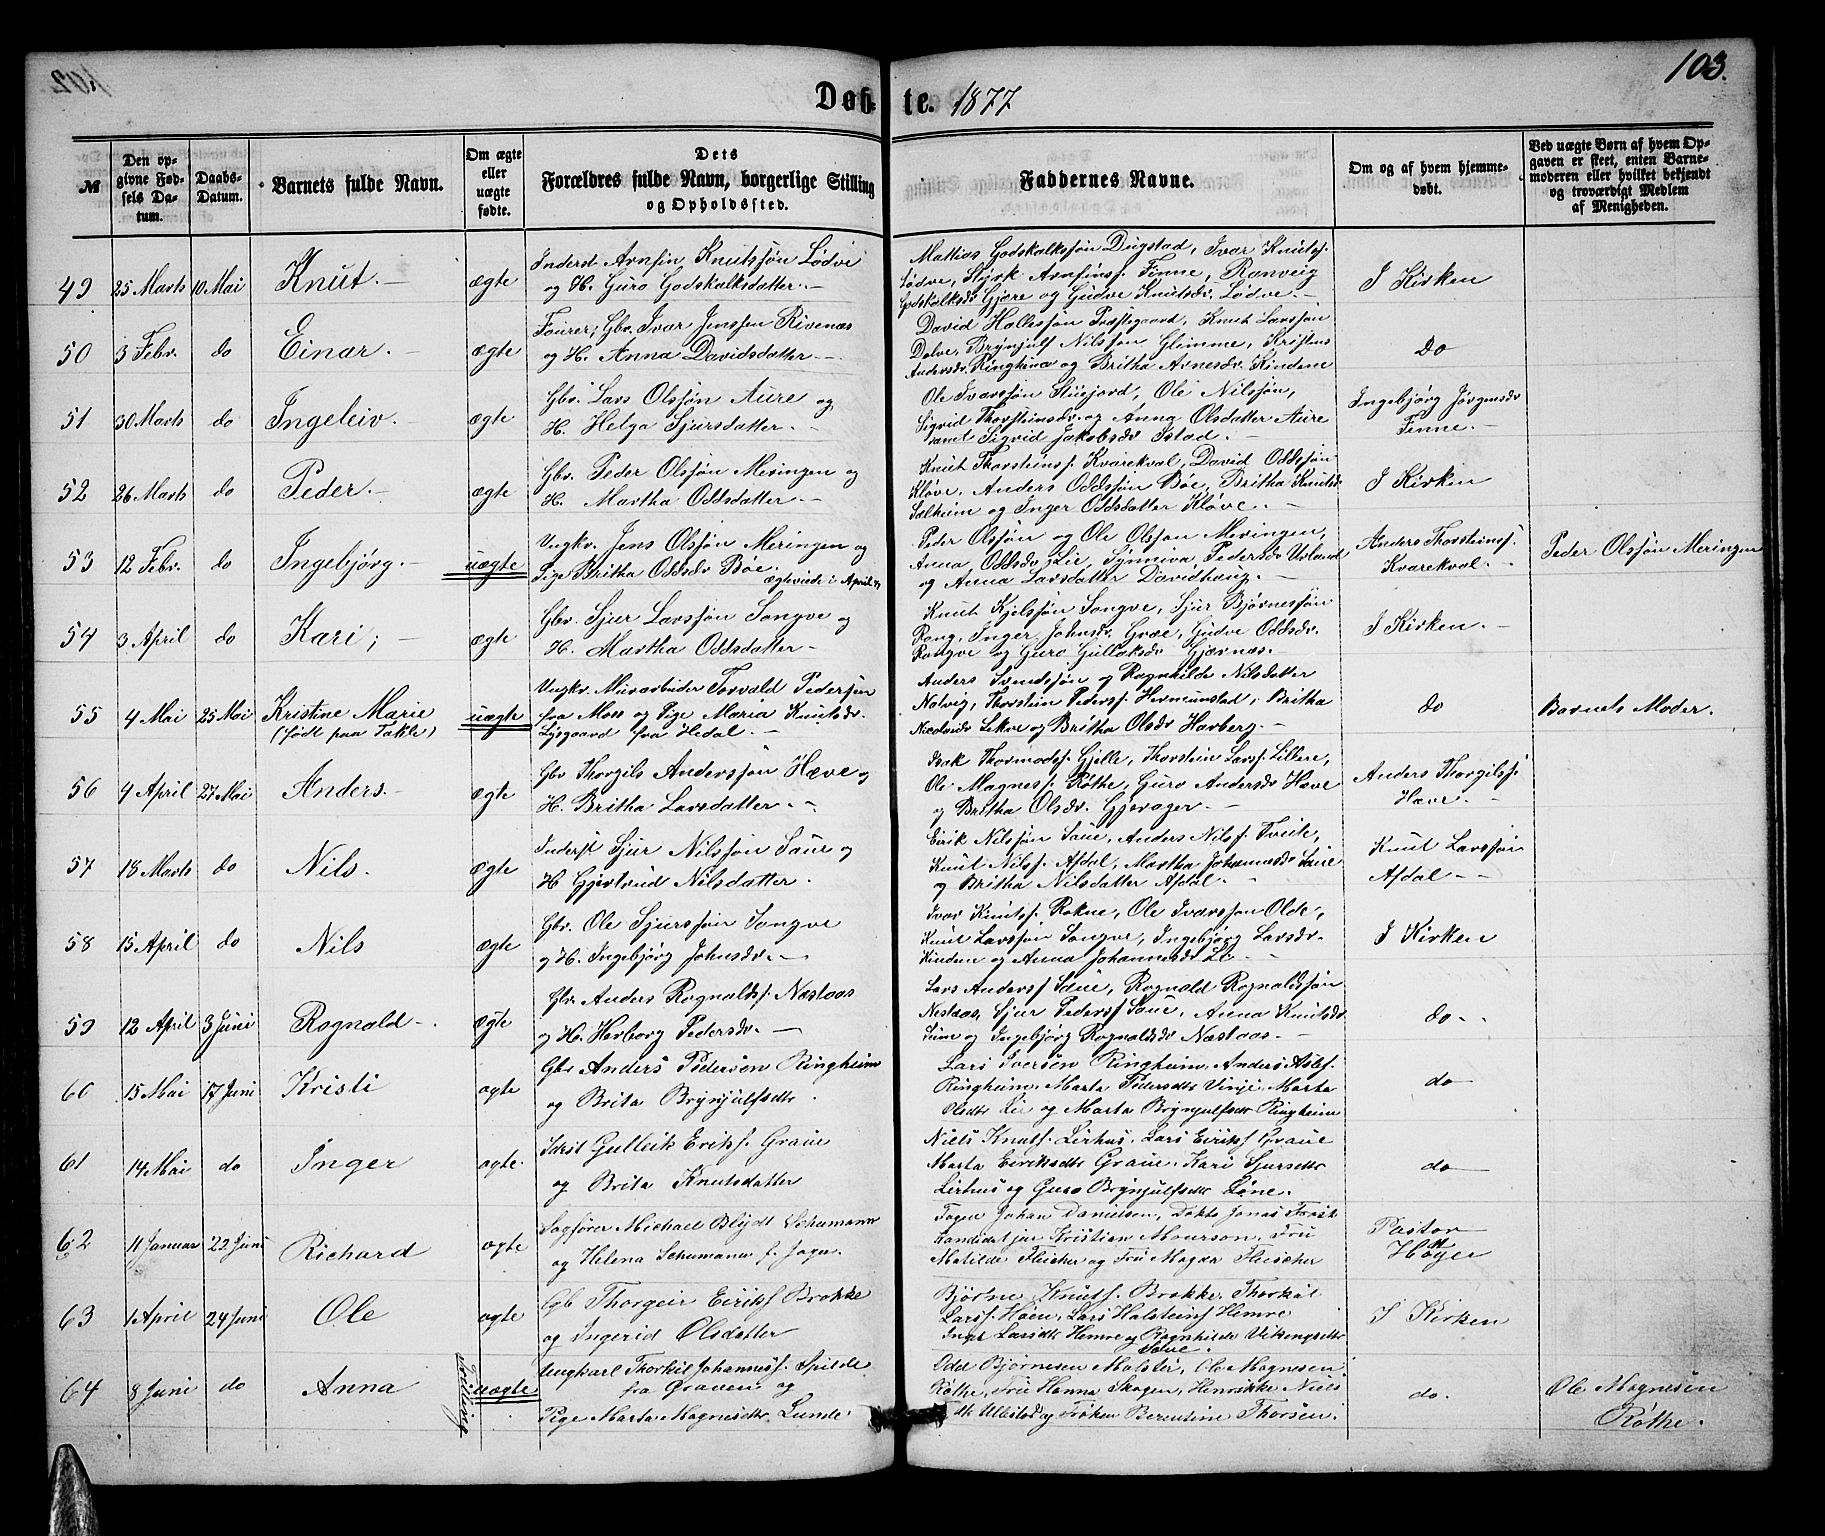 103.
Døbte. 1877
№
Den opgivne Fødsels Datum.
Daabs-Datum.
Barnets fulde Navn.
Om ægte eller uægte fødte.
Dets Forældres fulde Navn, borgerlige Stilling og Opholdssted.
Faddernes Navne.
Om og af hvem hjemmedøbt.
Ved uægte Børn af hvem Opgaven er skeet, enten Barnemoderen eller hvilket bekjendt og troværdigt Medlem af Menigheden.
49 25 Marts 10 Mai Knut. ægte
Inderst Arnfin Knutsøn Lødve
og H. Guro Godskalksdatter.
Mathias Godskalksøn Dugstad, Ivar Knutsf.
Lødve, Styrk Arnfinsf. Finne, Ranveig
Godskalksdr Gjøre og Gudve Knutsdr. Lødve.
I Kirken
50 3 Febr. do Einar. ægte
Fourer, Gbr. Ivar Jenssen Rivenæs
og H. Anna Davidsdatter
David Hallesøn Præstegaard, Knut Larssøn
Dolve, Brynjulf Nilssøn Glimme, Kristens
Andersdr. Ringheim og Britha Arnesdr. Kindem
do
51 30 Marts do Ingeleiv. ægte
Gbr. Lars Olsøn Aure og
H. Helga Sjursdatter.
Ole Ivarssøn Stuejord, Ole Nilsøn,
Sigrid Thorsteinsdr. og Anna Olsdatter Aure
samt Sigrid Jakobsdr Istad.
Ingebjørg Jørgensdr
Finne.
52 26 Marts do Peder. ægte
Gbr. Peder Olssøn Meringen og
H. Martha Oddsdatter.
Knut Thorsteinsf. Kvarekval, David Oddsøn
Kløve, Anders Oddsøn Bøe, Britha Knutsdr
Sælheim og Inger Oddsdatter Kløve.
I Kirken
53 12 Febr. do Ingebjørg. uægte
Ungkr. Jens Olsøn Meringen og
Pige Britha Oddsdr Bøe. ægteviede i April 77
Peder Olsøn og Ole Olsøn Meringen,
Anna Oddsdr Lie, Synniva Pedersdr Ulland
og Anna Larsdatter Davidhaug.
Anders Thorsteinsf.
Kvarekval.
Peder Olssøn Meringen
54 3 April do Kari; ægte
Gbr. Sjur Larssøn Songve og
H. Martha Oddsdatter
Knut Kjelsøn Songve, Sjur Bjørnesøn
Rong, Inger Johnsdr. Græe, Gudve Oddsdr.
Rongve og Guro Gullaksdr Gjærnæs.
I Kirken.
55 4 Mai 25 Mai Kristine Marie
(født paa Takle) uægte
Ungkr. Murarbeider Torvald Pedersen
fra Moss og Pige Maria Knutsdr.
Lysgaard fra Hedal.
Anders Svendsøn og Ragnhilde Nilsdatter
Nalvig, Thorstein Pedersf. Hermunstad, Britha
Nædreids Lekve og Britha Olsdr Havberg.
do
Barnets Moder.
56 4 April 27 Mai Anders. ægte
Gbr Thorgils Anderssøn Hæve og
H. Britha Larsdatter.
Isak Thormodsf. Gjelle, Thorstein Larsf. Lillere,
Ole Magnesf. Røthe, Guro Andersdr Hæve
og Britha Olsdr. Gjerager.
Anders Thorgilsf.
Hæve.
57 18 Marts do Nils. ægte
Inderst Sjur Nilssøn Saue og
H Gjertrud Nilsdatter.
Eirik Nilsøn Saue, Anders Nilsf. Tveite,
Knut Nilsf. Afdal, Martha Johannesdr Saue
og Britha Nilsdatter Afdal.
Knut Larssøn
Afdal
58 15 April do Nils ægte
Gbr. Ole Sjurssøn Songve
og H. Ingebjørg Johnsdr.
Ivar Knutsf. Rokne, Ole Ivarssøn Olde,
Knut Larssøn Songve, Ingebjørg Larsdr.
Kindem og Anna Johannesdr Li.
I Kirken
59 12 April 3 Juni Rognald. ægte
Gbr Anders Rognaldsf. Næstaas
og H. Herborg Pedersdr.
Lars Andersf Saue, Rognald Rognaldsøn
Nestaas, Sjur Pedersf Saue, Anna Knutsdr
Saue og Ingebjørg Rognaldsdr Næstaas.
do
60 15 Mai 17 Juni Kristi ogte
Gbr Anders Pedersen Ringheim
og Brita Brynjulfsdtr.
Lars Iversen Ringheim, Anders Aslef.
Ringheim, Marta Pedersdtr Vinje, Marta
Olsdtr Lie og Marta Brynjulfsdtr Ringheim
do
61 14 Mai do Inger ogte.
Idrst Gulleik Eriksf. Graue
og Brita Knutsdatter
Niels Knutsf. Lirhus. Lars Eiriksf Graue
Marta Eiriksdtr Graue. Kari Sjursdtr
Lirhus og Guro Brynjulfsdtr Løne.
do
62 11 Januar 22 Juni Richard ogte
Sagfører Michael Blydt Schumann
og Helena Schumann f. Fagn.
Fogen Johan Danielsen, Dokto JonasForst
Kandidat jur Kristian Mourson, Fru
Matilde Fleicher og Fru Magda Fleischer
Pastor
Høyer
63 1 April 24 Juni Ole ogte
Gb Thorgeir Eirikf Brokke
og Ingerid Olsdatter
Bjørne Knutsf. Brokke. Thorkil
Larsf. Høen, Lars Halsteinsf Himre
Inger Larsdtr Hemre og Ragnhilde Vikingsdtr
Saue.
I Kirken
64 8 Juni do Anna Tvilling uægte
Ungkarl Thorkil Johannesf. Spilde
fra Graven og
Pige Marta Magnesdtr. Lunde.
Odd Bjørnesen Mølster, Ole Magnesen
Røthe, Fru Hanna Skogen, Henrikke Niels
dtr Ulbstad og Frøken Berentine Thorsen.
do.
Ole Magnesen
Røthe.